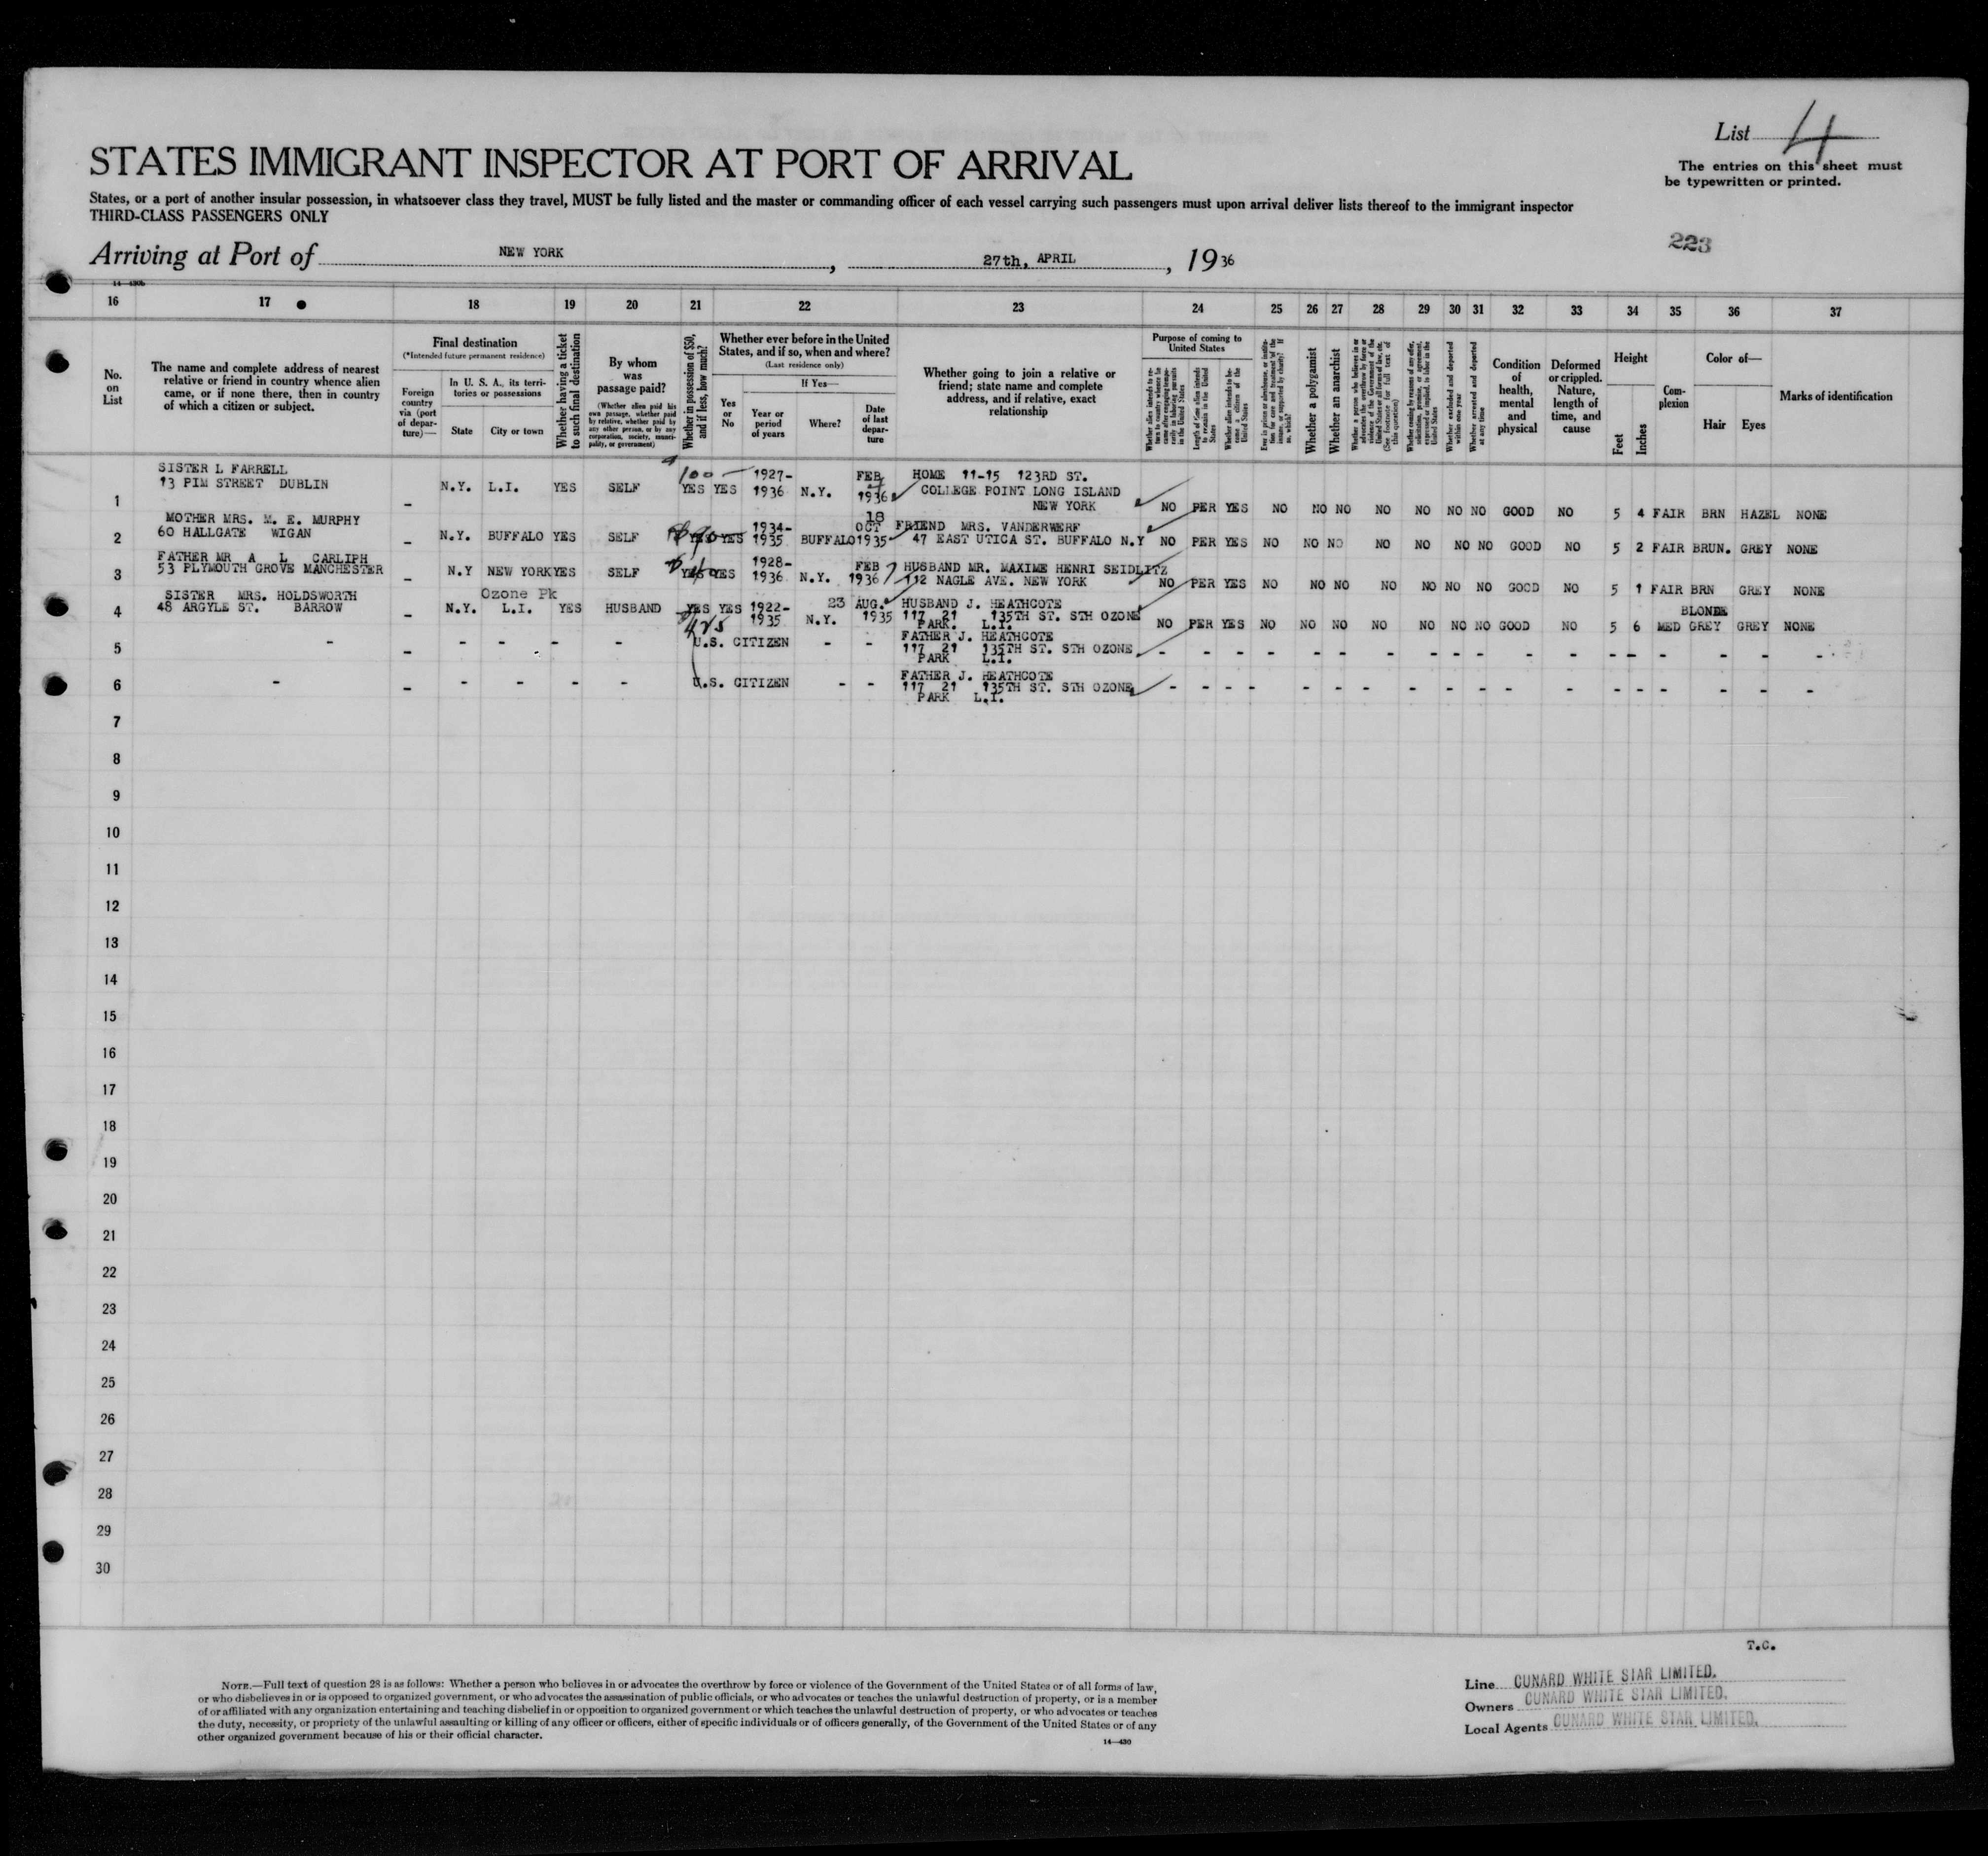 List 4
The entries on this sheet must
be typewritten or printed.
STATES IMMIGRANT INSPECTOR AT PORT OF ARRIVAL
States, or a port of another insular possession, in whatsoever class they travel, MUST be fully listed and the master or commanding officer of each vessel carrying such passengers must upon arrival deliver lists thereof to the immigrant inspector
THIRD-CLASS PASSENGERS ONLY
223
Arriving at Port of NEW YORK, 27th, APRIL, 1936
14—430b
16 17 18 19 20 21 22 23 24 25 26 27 28 29 30 31 32 33 34 35 36 37
No. on List
The name and complete address of nearest
relative or friend in country whence alien
came, or if none there, then in country
of which a citizen or subject.
Final destination
(*Intended future permanent residence)
Foreign country via (port of departure)—
In U. S. A., its territories or possessions
State
City or town
Whether having a ticket to such final destination
By whom was passage paid?
(Whether alien paid his own passage, whether paid by relative, whether paid by any other person, or by any corporation, society, municipality, or government)
Whether in possession of $50, and if less, how much?
Whether ever before in the United States, and if so, when and where?
(Last residence only)
Yes or No
If Yes—
Year or period of years
Where?
Date of last departure
Whether going to join a relative or
friend; state name and complete
address, and if relative, exact
relationship
Purpose of coming to United States
Whether alien intends to return to country whence he came after engaging temporarily in laboring pursuits in the United States
Length of time alien intends to remain in the United States
Whether alien intends to become a citizen of the United States
Ever in prison or almshouse, or institution for care and treatment of the insane, or supported by charity? If so, which?
Whether a polygamist
Whether an anarchist
Whether a person who believes in or advocates the overthrow by force or violence of the Government of the United States or all forms of law, etc. (See footnote for full text of this question)
Whether coming by reasons of any offer, solicitation, promise, or agreement, expressed or implied, to labor in the United States
Whether excluded and deported within one year
Whether arrested and deported at any time
Condition of health, mental and physical
Deformed or crippled. Nature, length of time, and cause
Height
Feet
Inches
Complexion
Color of—
Hair
Eyes
Marks of identification
SISTER L FARRELL 100 — 1927- FEB HOME 11-15 123RD ST.
1 13 PIM STREET DUBLIN – N.Y. L.I. YES SELF YES YES 1936 N.Y. 1936 COLLEGE POINT LONG ISLAND
NEW YORK NO PER YES NO NO NO NO NO NO NO GOOD NO 5 4 FAIR BRN HAZEL NONE
MOTHER MRS. M. E. MURPHY 1934- 18 OCT FRIEND MRS. VANDERWERF
2 60 HALLGATE WIGAN – N.Y. BUFFALO YES SELF YES YES 1935 BUFFALO 1935 47 EAST UTICA ST. BUFFALO N.Y NO PER YES NO NO NO NO NO NO NO GOOD NO 5 2 FAIR BRUN. GREY NONE
FATHER MR A L CARLIPH 1928- FEB 7 HUSBAND MR. MAXIME HENRI SEIDLITZ
3 53 PLYMOUTH GROVE MANCHESTER – N.Y NEW YORK YES SELF YES YES 1936 N.Y. 1936 112 NAGLE AVE. NEW YORK NO PER YES NO NO NO NO NO NO NO GOOD NO 5 1 FAIR BRN GREY NONE
SISTER MRS. HOLDSWORTH Ozone Pk 23 AUG. HUSBAND J. HEATHCOTE BLONDE
4 48 ARGYLE ST. BARROW – N.Y. L.I. YES HUSBAND YES YES 1922-1935 N.Y. 1935 117 21 135TH ST. STH OZONE
PARK. L.I. NO PER YES NO NO NO NO NO NO NO GOOD NO 5 6 MED GREY GREY NONE
425
FATHER J. HEATHCOTE
5 – – – – – – U.S. CITIZEN – – 117 21 135TH ST. STH OZONE
PARK L.I. – – – – – – – – – – – – – – – – – –
FATHER J. HEATHCOTE
6 – – – – – – U.S. CITIZEN – – 117 21 135TH ST. STH OZONE
PARK L.I. – – – – – – – – – – – – – – – – – –
7
8
9
10
11
12
13
14
15
16
17
18
19
20
21
22
23
24
25
26
27
28
29
30
T.C.
NOTE.—Full text of question 28 is as follows: Whether a person who believes in or advocates the overthrow by force or violence of the Government of the United States or of all forms of law,
or who disbelieves in or is opposed to organized government, or who advocates the assassination of public officials, or who advocates or teaches the unlawful destruction of property, or is a member
of or affiliated with any organization entertaining and teaching disbelief in or opposition to organized government or which teaches the unlawful destruction of property, or who advocates or teaches
the duty, necessity, or propriety of the unlawful assaulting or killing of any officer or officers, either of specific individuals or of officers generally, of the Government of the United States or of any
other organized government because of his or their official character.
14—430
Line CUNARD WHITE STAR LIMITED.
Owners CUNARD WHITE STAR LIMITED.
Local Agents CUNARD WHITE STAR LIMITED.